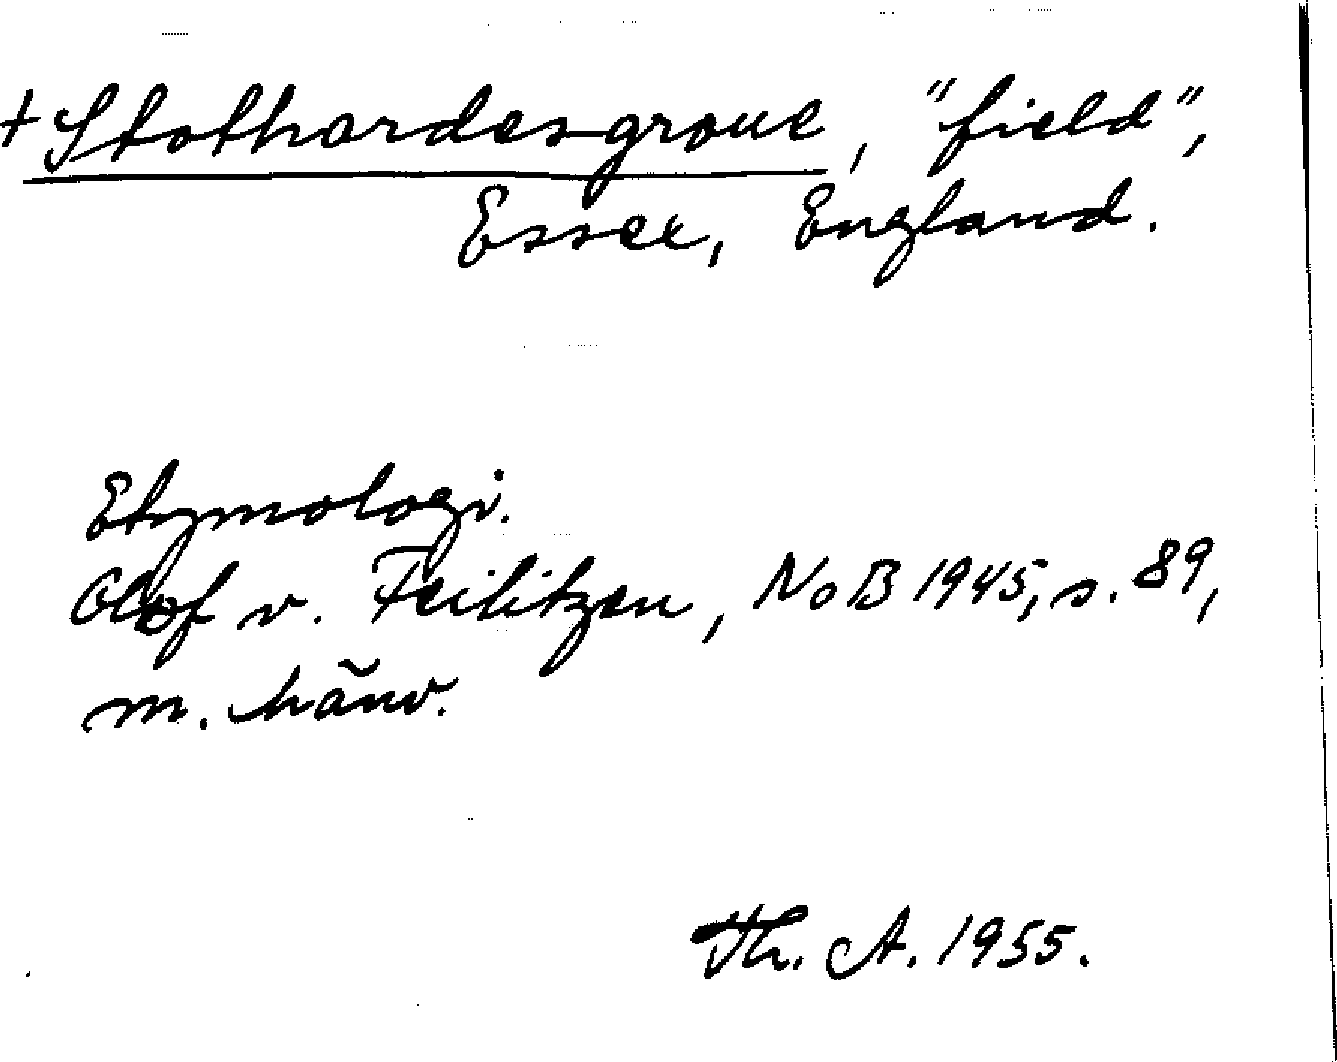 +Stothardesgroue, "field",
Essex, England.
Etymologi.
Olof v. Feilitzen, NoB 1945, s. 89,
m. hänv.
Th. A. 1955.